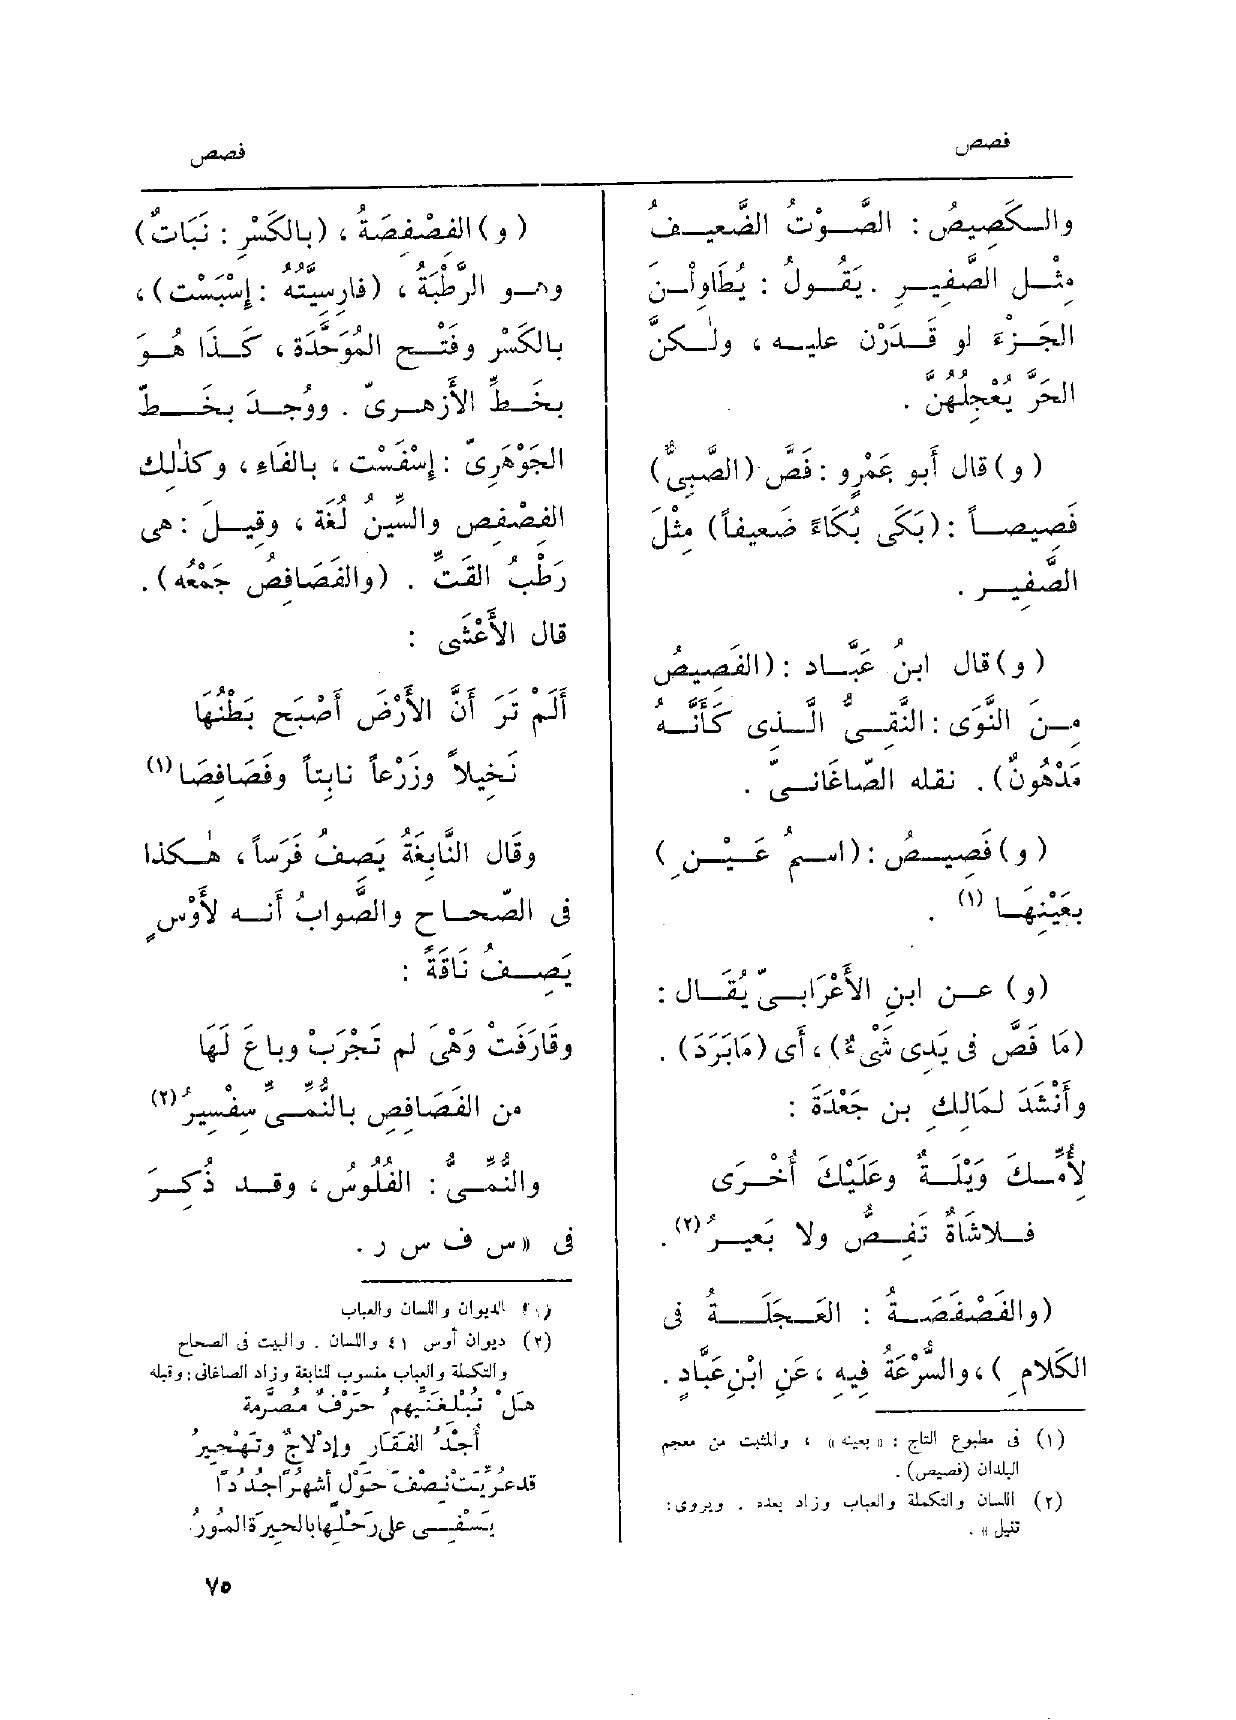 فصص
فصص
والـكَصِيصُ : الصَّـوْتُ الضَّعِيـفُ
مِثْـلِ الصَّفِيـرِ . يَقُـولُ : يُطَاوِلْـنَ
الجَـزْءَ لو قَـدَرْن عليـه ، ولٰـكنَّ
الحَرَّ يُعْجِلُهُنّ .
( و ) قال أَبو عَمْرٍو : فَصَّ ( الصَّبِىُّ )
فَصِيصـاً : ( بَكَى بُكَاءً ضَعِيفاً ) مِثْلَ
الصَّفِيـر .
( و ) قال ابنُ عَبَّـاد : ( الفَصِيصُ
مِـنَ النَّوَى : النَّقِـىُّ الَّـذى كَأَنَّـهُ
مَدْهُونٌ ) . نقله الصّاغَانـىّ .
( و ) فَصِيـصُ : ( اسـمُ عَيْـنٍ )
بعَيْنِهَـا (١) .
( و ) عـن ابنِ الأَعْرَابـىّ يُقَـال :
( مَا فَصَّ فى يَدِى شَىْءٌ ) ، أَى ( مَابَرَدَ ) .
وأَنْشَدَ لمَالِكِ بن جَعْدَةَ :
لِأُمِّـكَ وَيْلَـةٌ وعَلَيْكَ أُخْـرَى
فـلاشَاةٌ تَفِـصُّ ولا بَعِيـرُ (٢) .
( والفَصْفَصَـةُ : العَـجَلَـةُ فى
الكَلامِ ) ، والسُّرْعَةُ فيه ، عَنِ ابْنِ عَبَّادٍ .
(١) فى مطبوع التاج : « بعينه » ، والمثبت من معجم
البلدان (فصيص) .
(٢) اللسان والتكملة والعباب وزاد بعده . ويروى :
تنيل » .
( و ) الفِصْفِصَةُ ، ( بالكَسْرِ : نَبَاتٌ )
وهـو الرَّطْبَةُ ، ( فارِسِيَّتُهُ : إِسْبَسْت ) ،
بالكَسْرِ وفَتْـحِ المُوَحَّدَة ، كَـذَا هُـوَ
بخَـطِّ الأَزهـرىّ . ووُجِـدَ بخَـطّ
الجَوْهَرِىّ : إِسْفَسْت ، بالفَاءِ ، وكذٰلك
الفِصْفِص والسِّينُ لُغَة ، وقِيـلَ : هى
رَطْبُ القَتِّ . ( والفَصَافِصُ جَمْعُه ) .
قال الأَعْشَى :
أَلَمْ تَرَ أَنَّ الأَرْضَ أَصْبَح بَطْنُهَا
نَخِيلاً وزَرْعاً نابِتاً وفَصَافِصَا (١)
وقَال النَّابِغَةُ يَصِفُ فَرَساً ، هٰـكذا
فى الصّحـاح والصَّوابُ أَنـه لأَوْسٍ
يَصِـفُ نَاقَةً :
وقَارَفَتْ وَهْىَ لم تَجْرَبْ وباعَ لَهَا
من الفَصَافِصِ بالنُّمِّـىِّ سِفْسِيرُ (٢)
والنُّمِّـىُّ : الفُلُوسُ ، وقـد ذُكِـرَ
فى « س ف س ر .
(١) الديوان واللسان والعباب
(٢) ديوان أوس ٤١ واللسان . والبيت فى الصحاح
والتكملة والعباب منسوب للنابغة وزاد الصاغانى : وقبله
هَلْ تُبْلِغَنِّيهِمُ حَرْفٌ مُصَرَّمَةٌ
أُجْدُ الفَقَارِ وإِدْلاجٌ وتَهْجِيرُ
قد عُرِّيَتْ نِصْفَ حَوْلٍ أَشْهُرًا جُدُدًا
يَسْفِـى على رَحْلِها بالحِيرَةِ المُورُ
٧٥